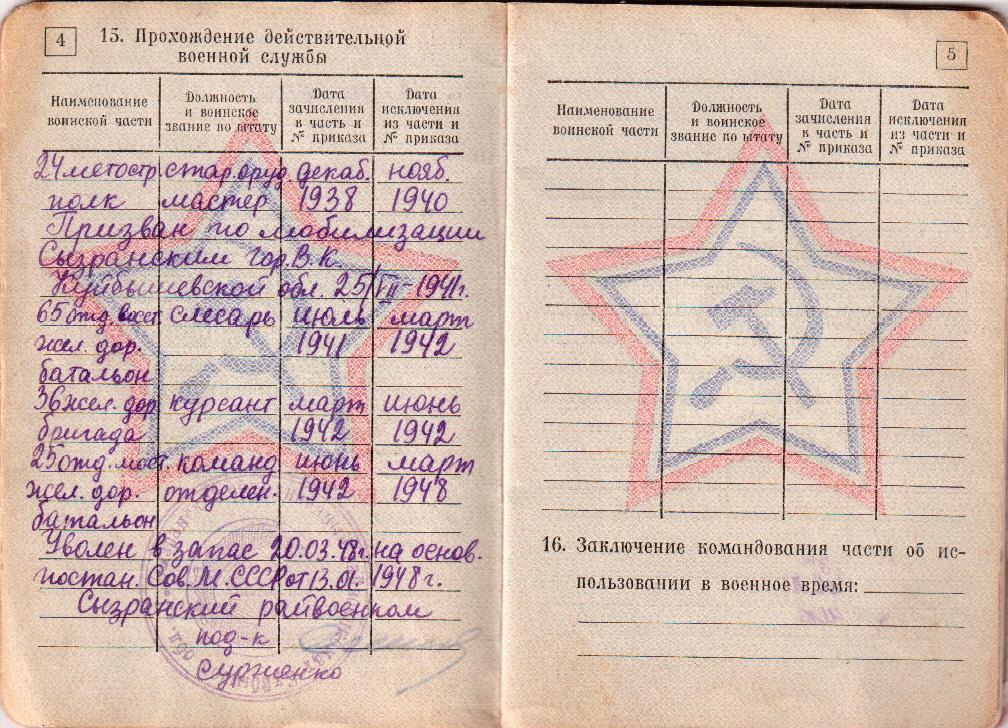 4
15. Прохождение действительной
военной службы
Наименование воинской части
Должность и воинское звание по штату
Дата зачисления в часть и № приказа
Дата исключения из части и № приказа
24 метостр. стар.оруд. декаб. нояб.
полк мастер 1938 1940
Призван по мобилизации
Сызранским Гор.В.К.
Куйбышевской обл. 25/VII-1941г.
65 отд. восст. слесарь июль март
жел. дор. 1941 1942
батальон
36 жел. дор. курсант март июнь
бригада 1942 1942
25 отд. мост. команд июнь март
жел. дор. отделен. 1942 1948
батальон
Уволен в запас 20.03.48г. на основ.
постан. Сов.М.СССР от 13.01.1948г.
Сызранский райвоенком
под-к
Сурженко
5
Наименование воинской части
Должность и воинское звание по штату
Дата зачисления в часть и № приказа
Дата исключения из части и № приказа
16. Заключение командования части об ис-
пользовании в военное время: